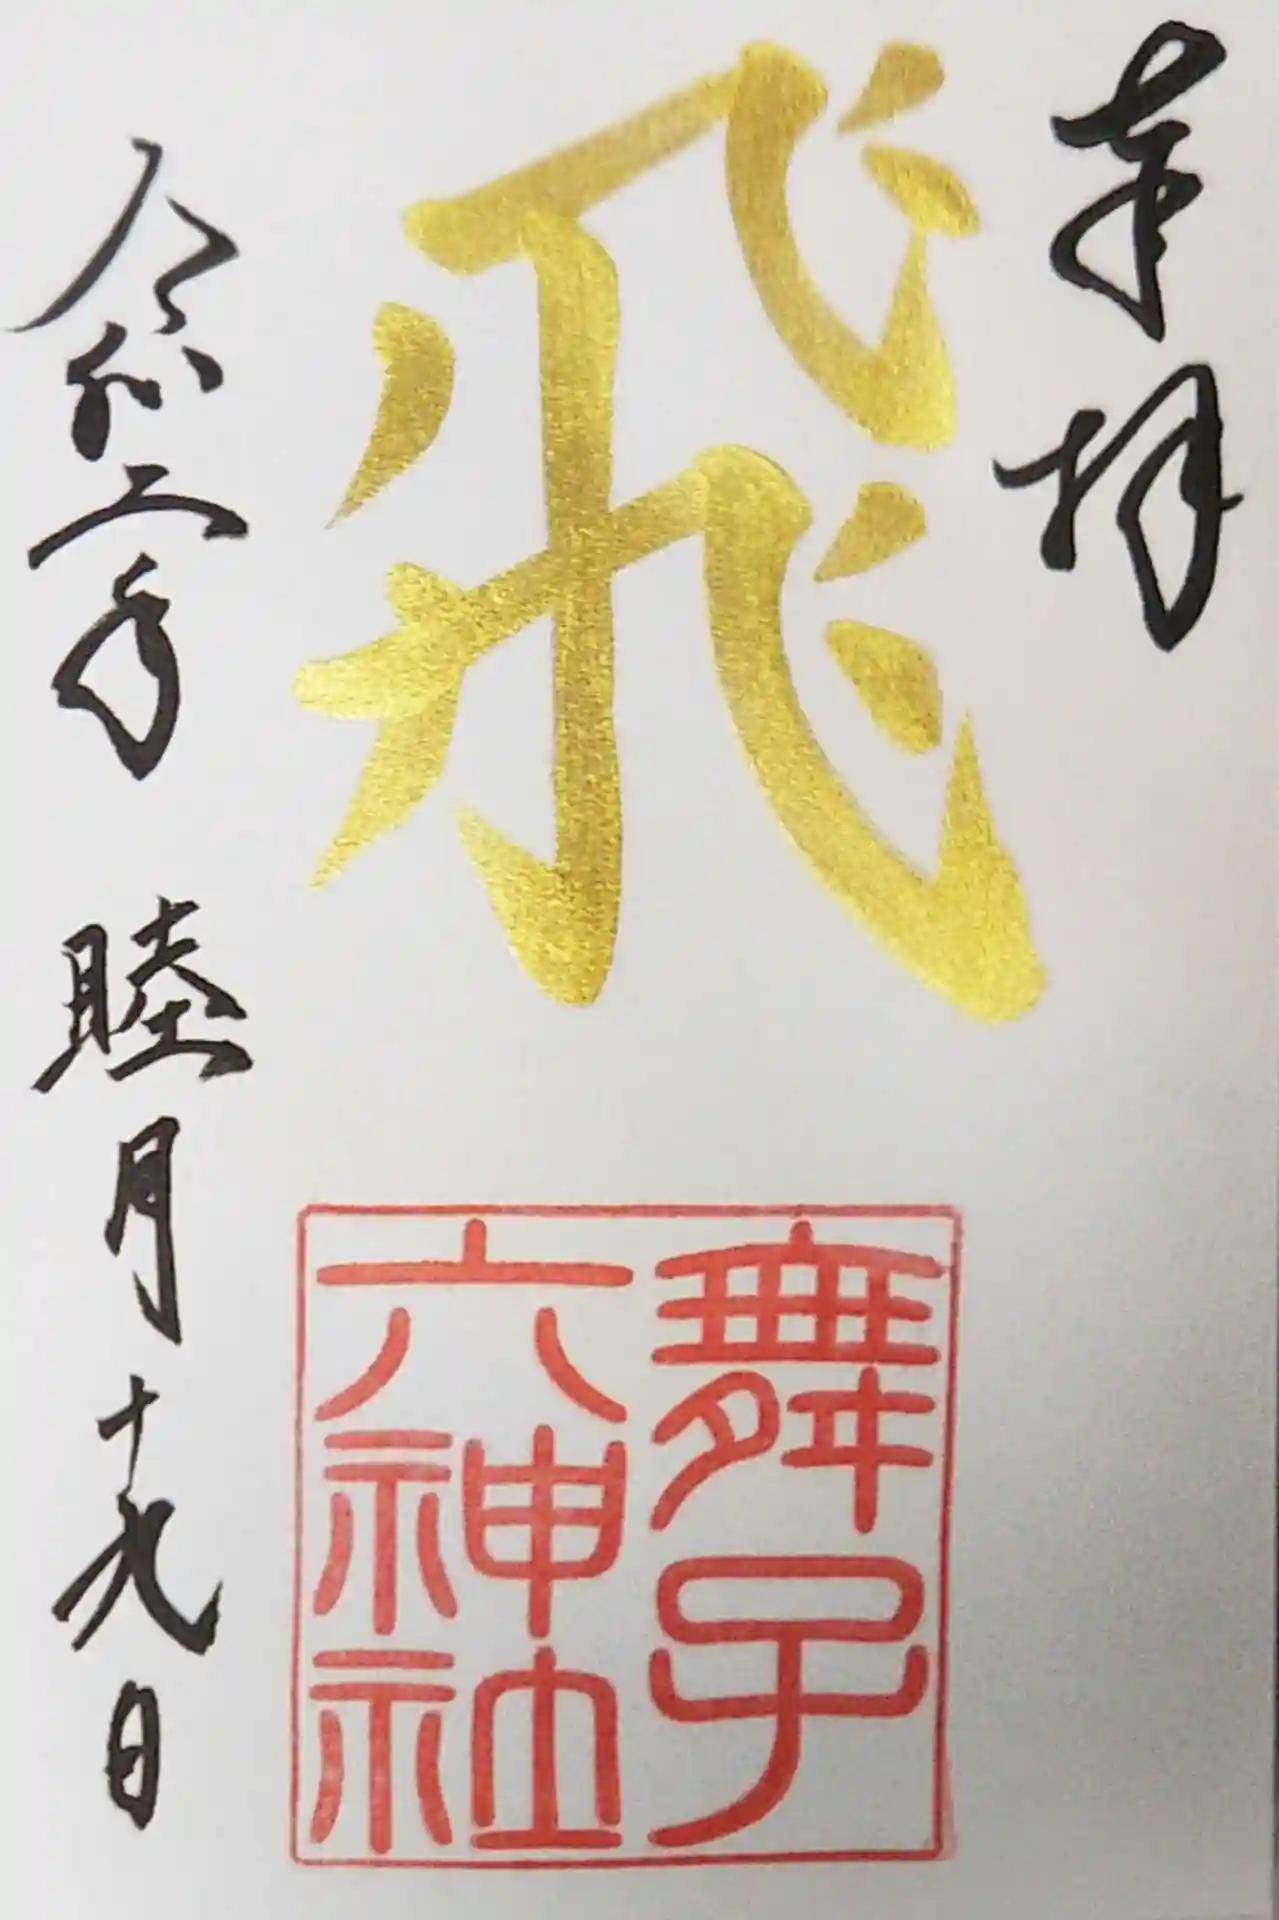 奉拝
飛
舞子
六神社
令和二年 睦月十九日